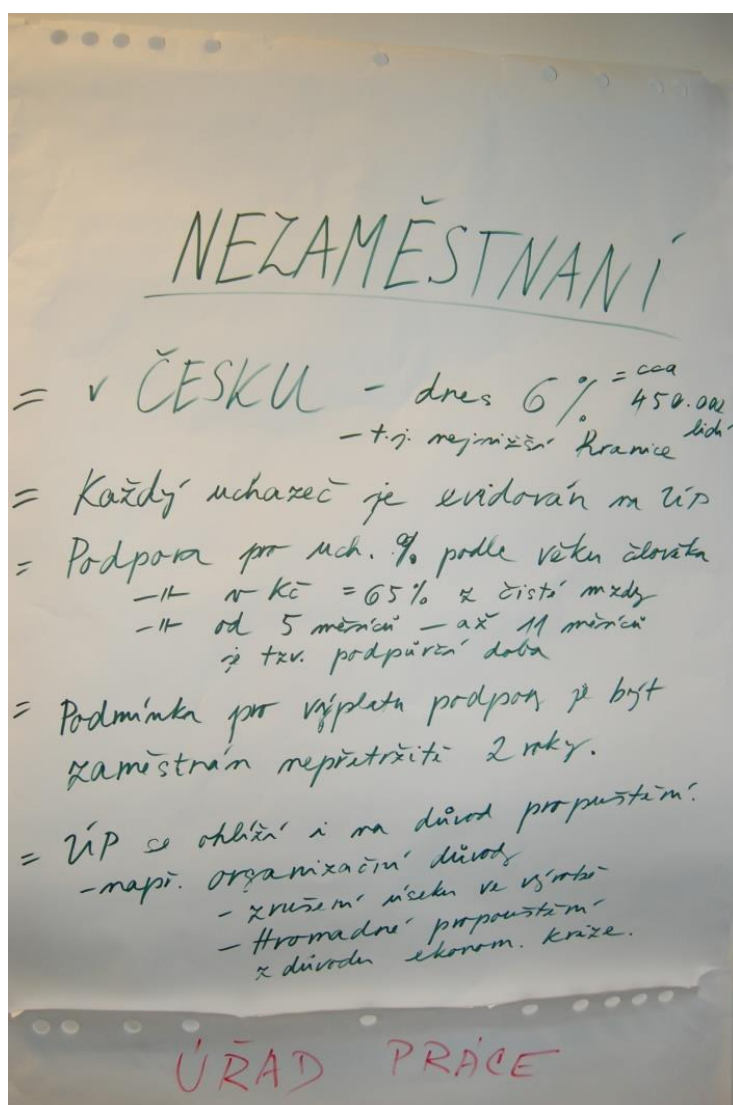 NEZAMĚSTNANÍ
= v ČESKU - dnes 6% = cca 450.000 lidí
- t.j. nejnižší hranice
= Každý uchazeč je evidován na ÚP
= Podpora pro uch. % podle věku člověka
-"- v Kč = 65% z čisté mzdy
-"- od 5 měsíců - až 11 měsíců
je tzv. podpůrčí doba
= Podmínka pro výplatu podpory je být
zaměstnán nepřetržitě 2 roky.
= ÚP se ohlíží i na důvod propuštění.
- např. organizační důvody
- zrušení úseku ve výrobě
- Hromadné propouštění
z důvodu ekonom. krize.
ÚŘAD PRÁCE